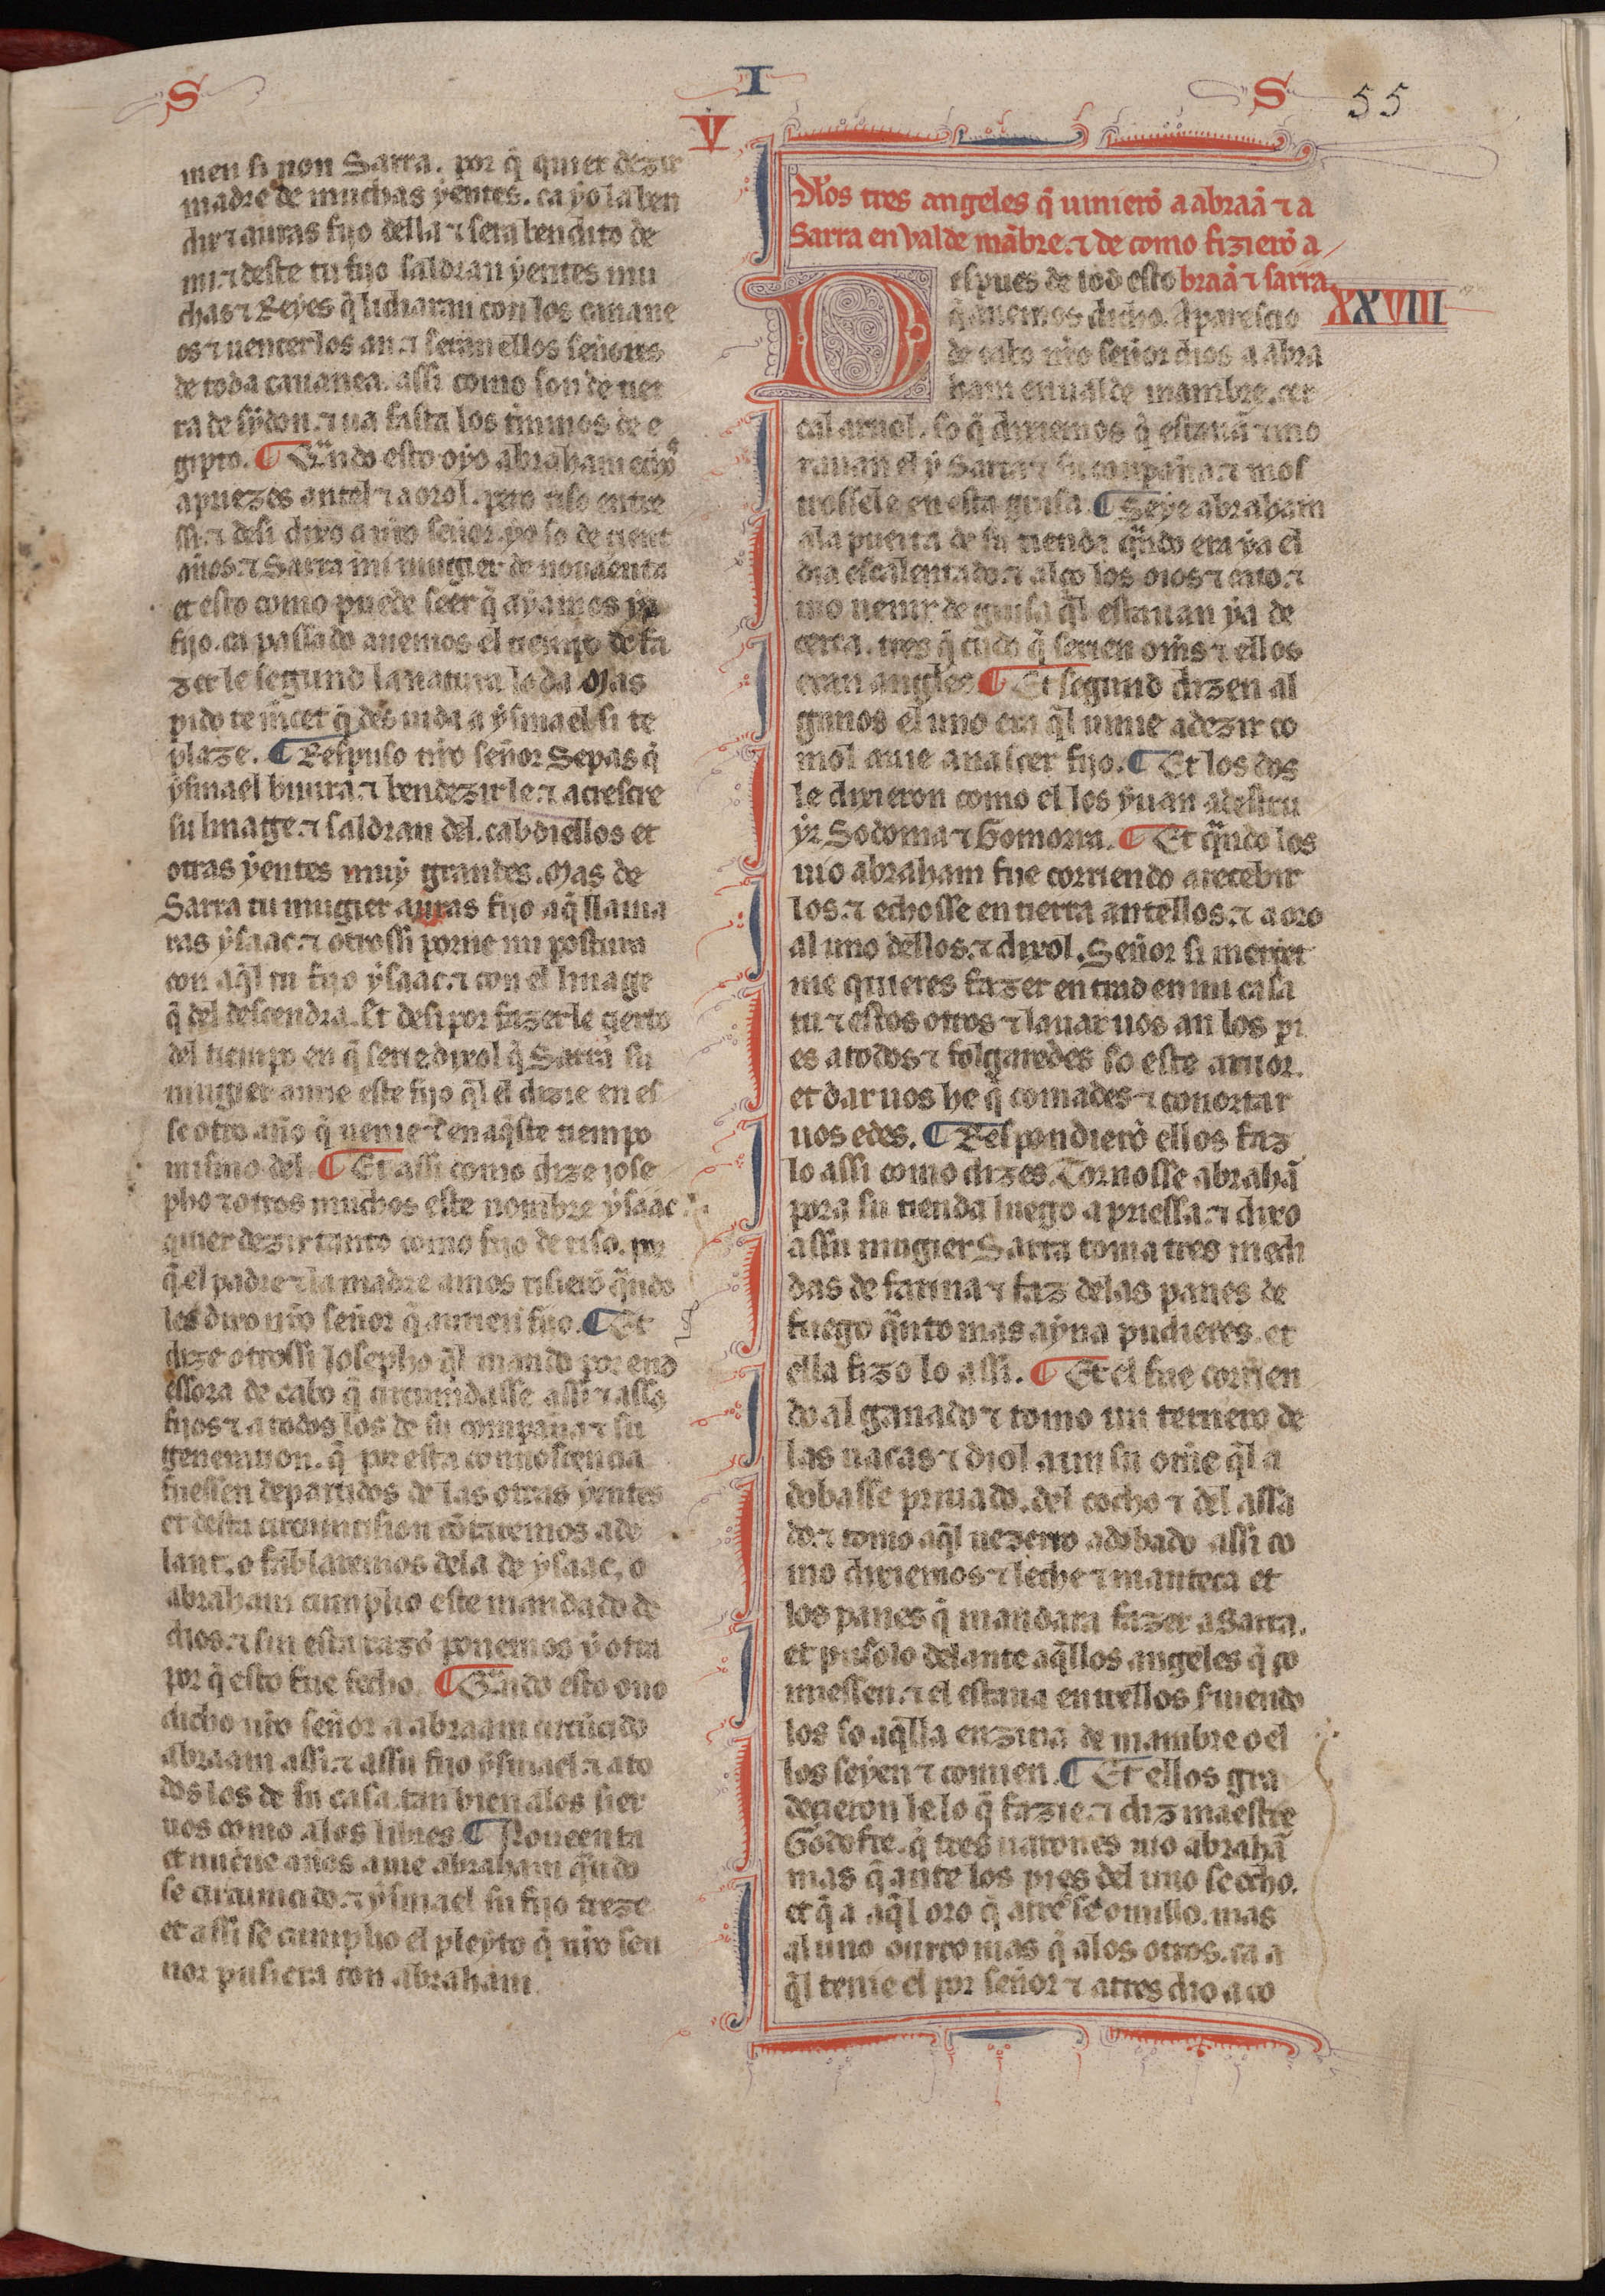 S
I
S
55
V
men si non Sarra. por q̃ quier dezir
madre de muchas ẏentes. ca ẏo la ben
dix ⁊ auras fijo della ⁊ sera bendito de
mi. ⁊ deste tu fijo saldran ẏentes mu
chas ⁊ Reyes q̃ lidiaran con los cimane
os ⁊ uencer los an. ⁊ seran ellos señores
de toda cananea. assi como son de tier
ra de sẏdon. ⁊ ua fasta los terminos de e
gipto. ¶ Qⁿdo esto oẏo abraham echos
a puezes antel ⁊ aorol. pero riso entre
ssi. ⁊ desi dixo a nr̃o señor. ẏo so de cient
años. ⁊ Sarra mi mugier de nouaenta
et esto como puede seer q̃ aẏamos ẏa
fijo. ca passado auemos el tiempo de fa
zer le segund la natura lo da Mas
pido te m̃cet q̃ des uida a ẏsmael si te
plaze. ¶ Respuso nr̃o señor Sepas q̃
ẏsmael biuira. ⁊ bendezir le. ⁊ acrescre
su linage. ⁊ saldran del. cabdiellos et
otras ẏentes muẏ grandes. Mas de
Sarra tu mugier auras fijo a q̃ llama
ras ẏsaac. ⁊ otrossi porne mi postura
con aq̃l tu fijo ẏsaac. ⁊ con el linage
q̃ del descendra. Et desi por fazerle çierto
del tiempo en q̃ serie dixol q̃ Sarra su
mugier aurie este fijo q̃l el dizie en es
se otro año q̃ uenie ⁊ en aq̃ste tiempo
mismo del. ¶ Et assi como dize jose
pho ⁊ otros muchos este nombre ẏsaac
quier dezir tanto como fijo de riso. por
q̃ el padre ⁊ la madre amos risierõ qⁿdo
les dixo nr̃o señor q̃ aurien fijo. ¶ Et
dize otrossi Josepho q̃l mando por end
essora de cabo q̃ circumdasse assi ⁊ assos
fijos ⁊ a todos los de su compaña ⁊ su
generation. q̃ por esta connoscencia
fuessen departidos de las otras ẏentes
et desta circuncision cõtaremos ade
lant. o fablaremos dela de ẏsaac. o
abraham cumplio este mandado de
dios. ⁊ sin esta razõ ponemos ẏ otra
por q̃ esto fue fecho. ¶ Qⁿdo esto ouo
dicho nr̃o señor a abraam circũcido
abraam assi. ⁊ assu fijo ẏsmael. ⁊ a to
dos los de su casa. tan bien alos sier
uos como alos libres. ¶ Nouaenta
et nueue años auie abraham qⁿdo
se circuncido. ⁊ ẏsmael su fijo treze
et assi se cumplio el pleẏto q̃ nr̃o sen
nor pusiera con abraham.
Dlos tres angeles q̃ uinierõ a abraã ⁊ a
Sarra en Val de mãbre. ⁊ de como fizierõ a
braã ⁊ sarra.
XXVIII
Despues de tod esto
q̃ auemos dicho. Aparescio
de cabo nr̃o señor dios a abra
ham en ual de mambre. cer
cal aruol. so q̃ dixiemos q̃ estauã ⁊ mo
rauan el ẏ Sarra ⁊ su conpaña. ⁊ mos
trossele en esta guisa. ¶ Seẏe abraham
ala puerta de su tienda qⁿdo era ẏa el
dia escalentado. ⁊ alço los oios ⁊ cato. ⁊
uio uenir de guisa q̃l estauan ẏa de
cerca. tres q̃ cudo q̃ serien om̃s ⁊ ellos
eran angles. ¶ Et segund dizen al
gunos el uno era q̃l uinie a dezir co
mol auie a nascer fijo. ¶ Et los dos
le dixieron como el los ẏuan a destru
ẏr Sodoma ⁊ Gomorra. ¶ Et qⁿdo los
uio abraham fue corriendo a recebir
los. ⁊ echosse en tierra antellos. ⁊ aoro
al uno dellos. ⁊ dixol. Señor si mercet
me quieres fazer entrad en mi casa
tu ⁊ estos otros ⁊ lauar uos an los pi
es a todos ⁊ folgaredes so este aruor.
et dar uos he q̃ comades ⁊ conortar
uos edes. ¶ Respondierõ ellos faz
lo assi como dizes. Tornosse abrahã
pora su tienda luego a priessa. ⁊ dixo
assu mugier Sarra toma tres medi
das de farina ⁊ faz delas panes de
fuego qⁿto mas aẏna pudieres. et
ella fizo lo assi. ¶ Et el fue corrien
do al ganado ⁊ tomo un ternero de
las uacas ⁊ diol a un su om̃e q̃l a
dobasse priuado. del cocho ⁊ del assa
do. ⁊ tomo aq̃l uezerro adobado assi co
mo dixiemos ⁊ leche ⁊ manteca et
los panes q̃ mandara fazer a Sarra.
et pusolo delante aq̃llos angeles q̃ co
miessen. ⁊ el estaua entrellos siruiendo
los so aq̃lla enzina de mambre o el
los seẏen ⁊ comien. ¶ Et ellos gra
decieron lelo q̃ fazie. ⁊ diz maestre
Godofre. q̃ tres uarones uio abrahã
mas q̃ ante los pies del uno se echo.
et q̃ a aq̃l oro q̃ atres se omillo. mas
al uno onrro mas q̃ alos otros. ca a
q̃l tenie el por señor ⁊ a tres dio a co